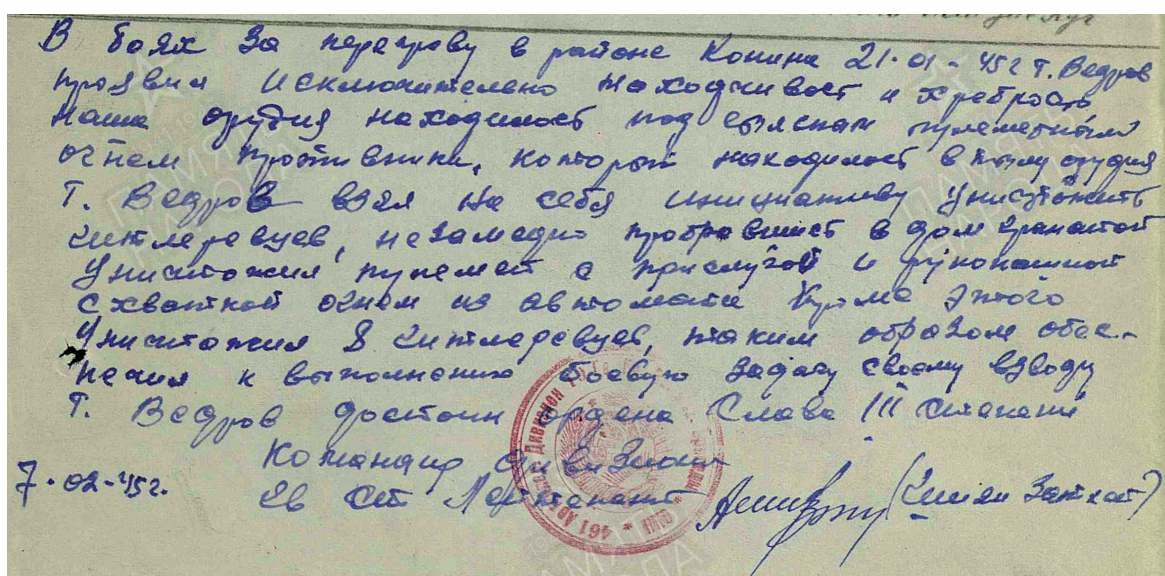 В боях за переправу в районе Конина 21.01-45г Т. Ведров
проявил исключительно находчивост и храброст
наша орудия находилось под сильным пулеметным
огнем противника, который находилост в тылу орудия
Т. Ведров взял на себя инициативу уничтожить
гитлеревцев, незамедно пробравшист в дом гранатой
уничтожил пулемет с прислугой и рукопашной
схваткой огнем из автомата кроме этого
уничтожил 8 гитлеревцев, таким образом обес-
печил к выполнению боевую задачу своему взводу
Т. Ведров достоин ордена Слава III степени
Командир дивизиона
Гв Ст Лейтенант
7.02-45г.
461
ПАМЯТЬ НАРОДА